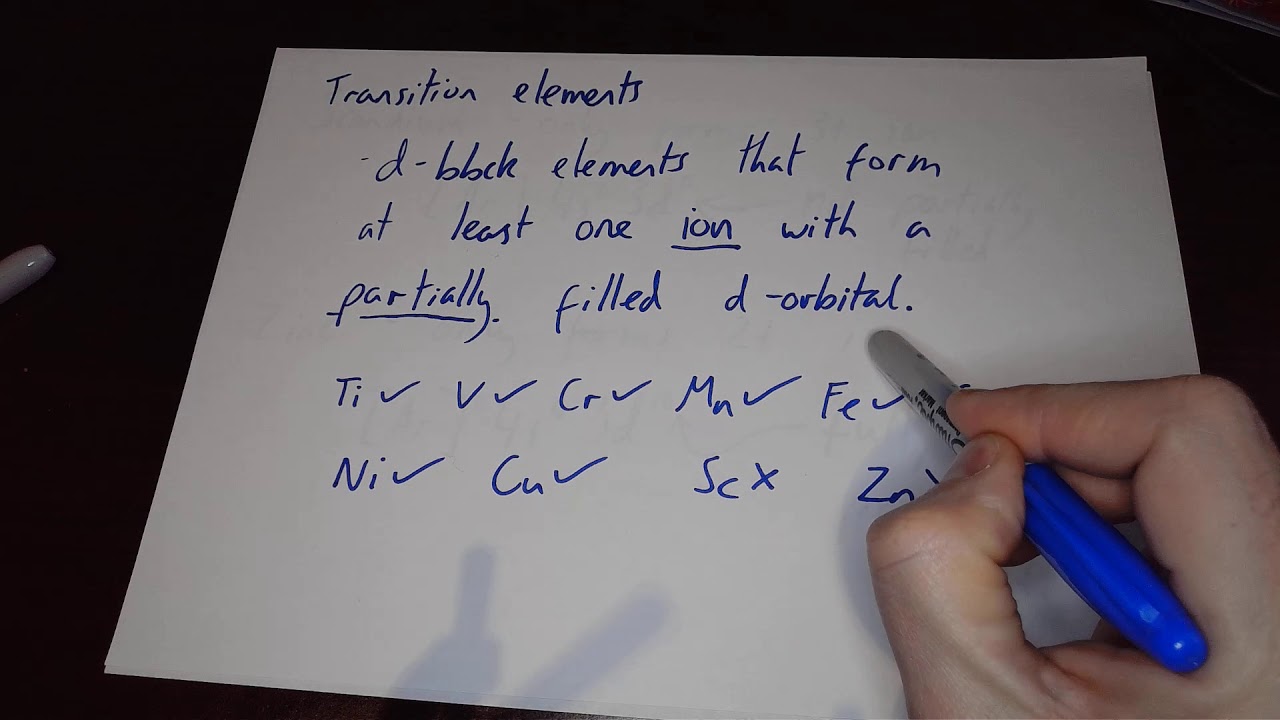 Transition elements
-d-block elements that form
at least one ion with a
partially filled d-orbital.
Ti ✓ V ✓ Cr ✓ Mn ✓ Fe ✓
Ni ✓ Cu ✓ Sc X Zn